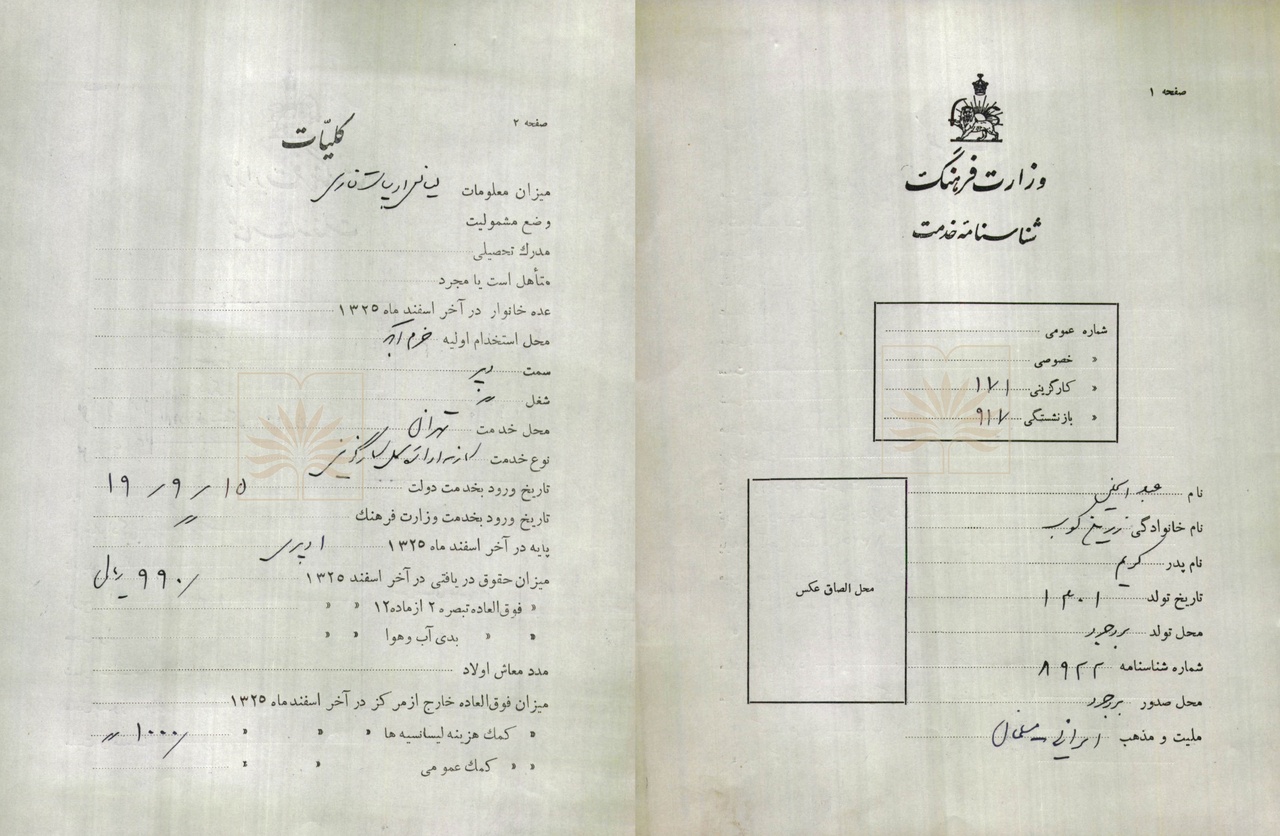 صفحه ۱
وزارت فرهنگ
شناسنامه خدمت
شماره عمومی
« خصوصی
« کارگزینی ۱۷۱
« بازنشستگی ۹۱۷
محل الصاق عکس
نام عبدالحسین
نام خانوادگی زرین کوب
نام پدر کریم
تاریخ تولد ۱۳۰۱
محل تولد بروجرد
شماره شناسنامه ۸۹۲۲
محل صدور بروجرد
ملیت و مذهب ایرانی – مسلمان
صفحه ۲
کلیّات
میزان معلومات لیسانس ادبیات فارسی
وضع مشمولیت
مدرك تحصیلی
متأهل است یا مجرد
عده خانوار در آخر اسفند ماه ۱۳۲۵
محل استخدام اولیه خرم آباد
سمت دبیر
شغل 〃
محل خدمت تهران
نوع خدمت
تاریخ ورود بخدمت دولت ۱۵ / ۹ / ۱۹
تاریخ ورود بخدمت وزارت فرهنك 〃
پایه در آخر اسفند ماه ۱۳۲۵ ۱ دبیری
میزان حقوق دریافتی در آخر اسفند ۱۳۲۵ ۹۹۰/ ریال
« فوق‌العاده تبصره ۲ از ماده ۱۲ « «
« « بدی آب وهوا « «
مدد معاش اولاد
میزان فوق‌العاده خارج از مرکز در آخر اسفند ماه ۱۳۲۵
« کمك هزینه لیسانسیه ها « « « ۱۰۰۰/ 〃
« « کمك عمومی « «